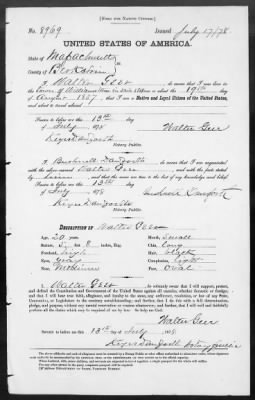 [FORM FOR NATIVE CITIZEN.]
No. 8969 Issued July 17/78
UNITED STATES OF AMERICA.
State of Massachusetts
County of Berkshire
I Walter Geer, do swear that I was born in the
Town of Williamstown on the 19th day
of August 1857, that I am a Native and Loyal Citizen of the United States,
and about to travel abroad
Sworn to before me this 13th day
of July 1878 Walter Geer
Keyes Danforth
Notary Public.
I Bushnell Danforth, do swear that I am acquainted with the
above named Walter Geer, and with the facts above stated
by him, and that the same are true to the best of my knowledge and belief.
Sworn to before me this 13th day
of July 1878 Bushnell Danforth
Keyes Danforth
Notary Public.
DESCRIPTION OF Walter Geer
Age: 20
Stature: 5 8 inches, Eng.
Forehead: high
Eyes: gray
Nose: medium
Mouth: small
Chin: long
Hair: black
Complexion: light
Face: Oval
I, Walter Geer, do solemnly swear that I will support, protect,
and defend the Constitution and Government of the United States against all enemies, whether domestic or foreign,
and that I will bear true faith, allegiance, and loyalty to the same, any ordinance, resolution, or law of any State,
Convention, or Legislature to the contrary notwithstanding; and further, that I do this with a full determination,
pledge, and purpose, without any mental reservation or evasion whatsoever; and, further, that I will well and faithfully
perform all the duties which may be required of me by law: So help me God.
Walter Geer
Sworn to before me this 13th July 1878
Keyes Danforth notary public